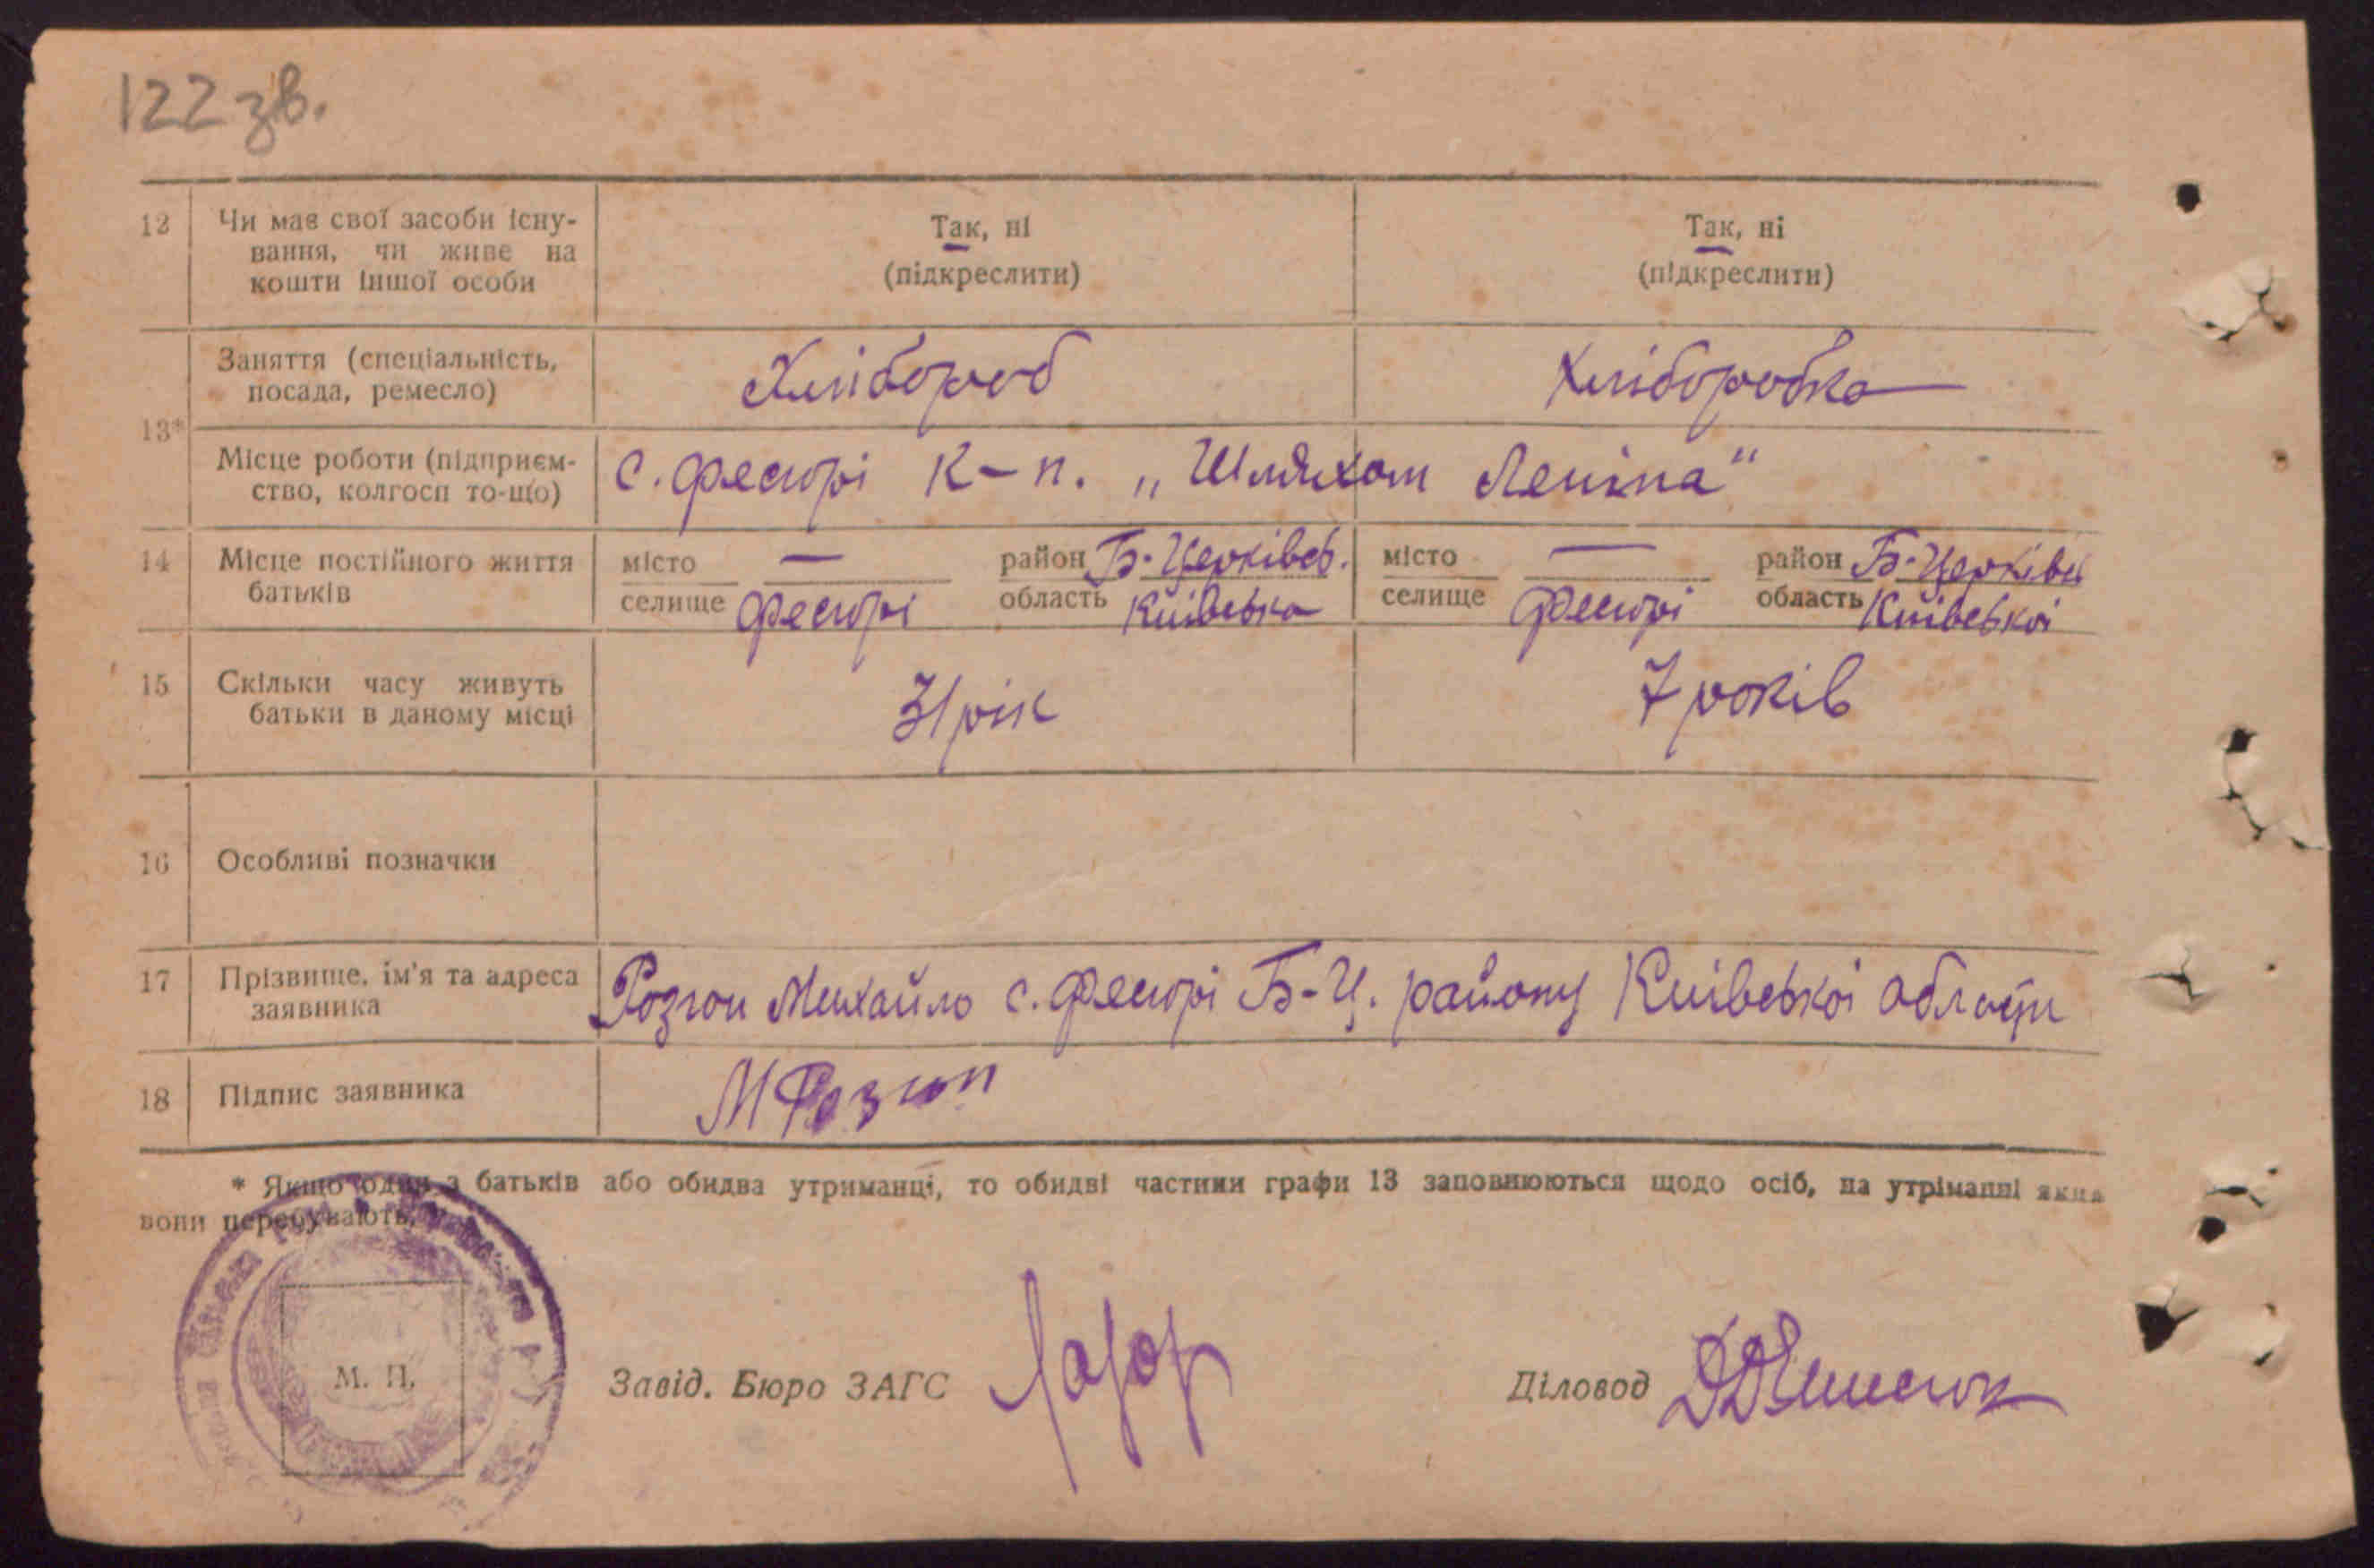 122 зв.
12 Чи має свої засоби існу-
вання, чи живе на
кошти іншої особи
Так, ні
(підкреслити)
Так, ні
(підкреслити)
13*
Заняття (спеціальність,
посада, ремесло)
Хлібороб
Хліборобка
Місце роботи (підприєм-
ство, колгосп то-що)
с. Фастурі К-п. „Шляхом Леніна"
14 Місце постійного життя
батьків
місто — район Б-Церківсь.
селище область Київська
місто — район Б-Церківсь
селище область Київської
15 Скільки часу живуть
батьки в даному місці
31 рік
7 років
16 Особливі позначки
17 Прізвище, ім'я та адреса
заявника
Розгон Михайло с. Б-Ц. району Київської области
18 Підпис заявника
М Розгон
* Якщо один з батьків або обидва утриманці, то обидві частини графи 13 заповнюються щодо осіб, на утріманні яких
вони перебувають.
М. П.
Завід. Бюро ЗАГС
Діловод